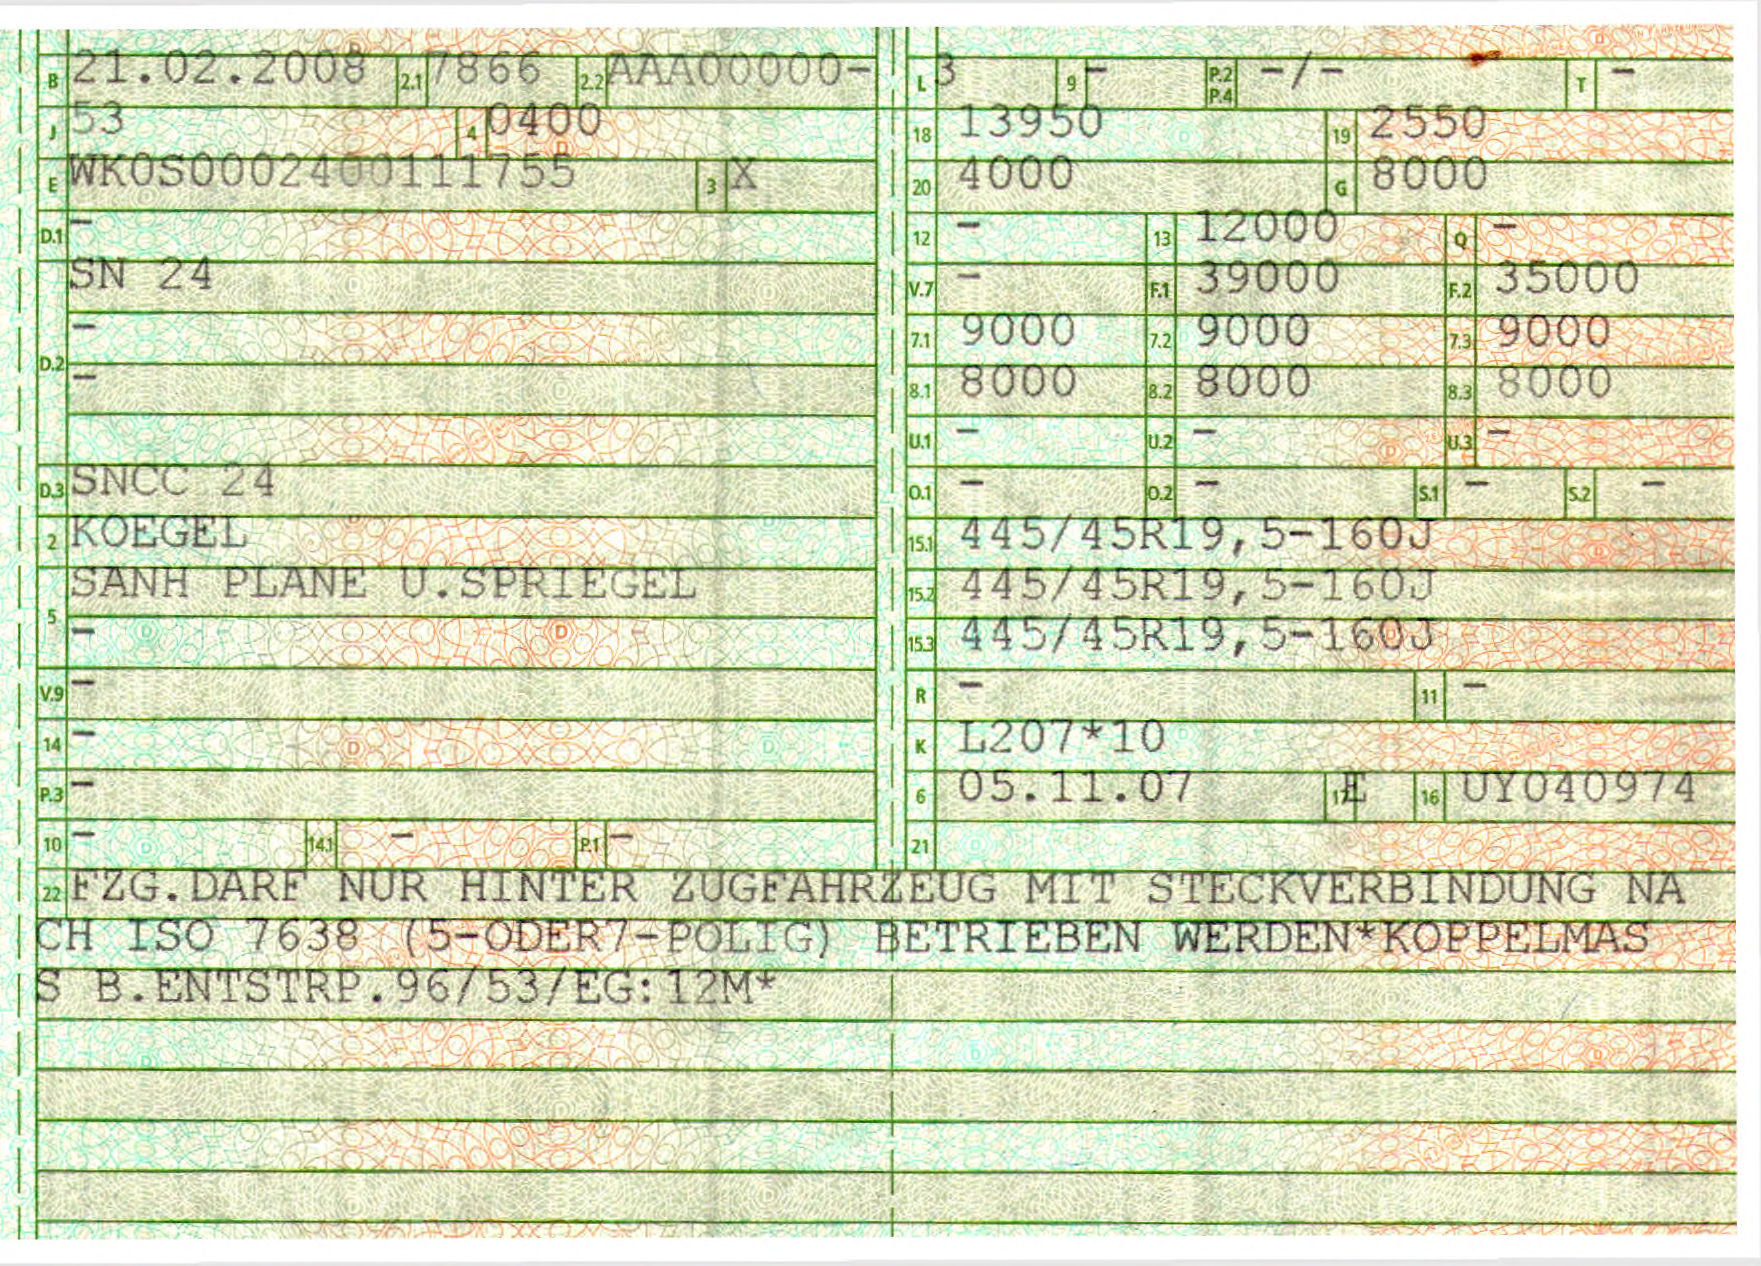 B 21.02.2008 2.1 7866 2.2 AAA00000-
J 53 4 0400
E WK0S0002400111755 3 X
D.1 -
SN 24
D.2 -
-
D.3 SNCC 24
2 KOEGEL
SANH PLANE U.SPRIEGEL
5 -
V.9 -
14 -
P.3 -
10 - 14.1 - P.1 -
L 3 9 - P.2 P.4 -/- T -
18 13950 19 2550
20 4000 G 8000
12 - 13 12000 Q -
V.7 - F.1 39000 F.2 35000
7.1 9000 7.2 9000 7.3 9000
8.1 8000 8.2 8000 8.3 8000
U.1 - U.2 - U.3 -
O.1 - O.2 - S.1 - S.2 -
15.1 445/45R19,5-160J
15.2 445/45R19,5-160J
15.3 445/45R19,5-160J
R - 11 -
K L207*10
6 05.11.07 17 E 16 UY040974
21
22 FZG.DARF NUR HINTER ZUGFAHRZEUG MIT STECKVERBINDUNG NA
CH ISO 7638 (5-ODER7-POLIG) BETRIEBEN WERDEN*KOPPELMAS
S B.ENTSTRP.96/53/EG:12M*